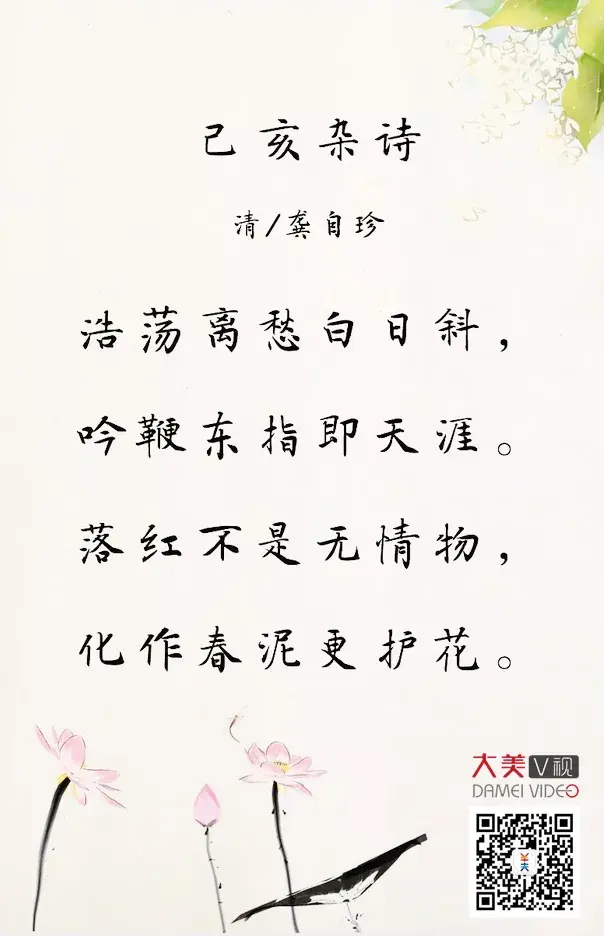 己亥杂诗
清/龚自珍
浩荡离愁白日斜，
吟鞭东指即天涯。
落红不是无情物，
化作春泥更护花。
大美V视
DAMEI VIDEO